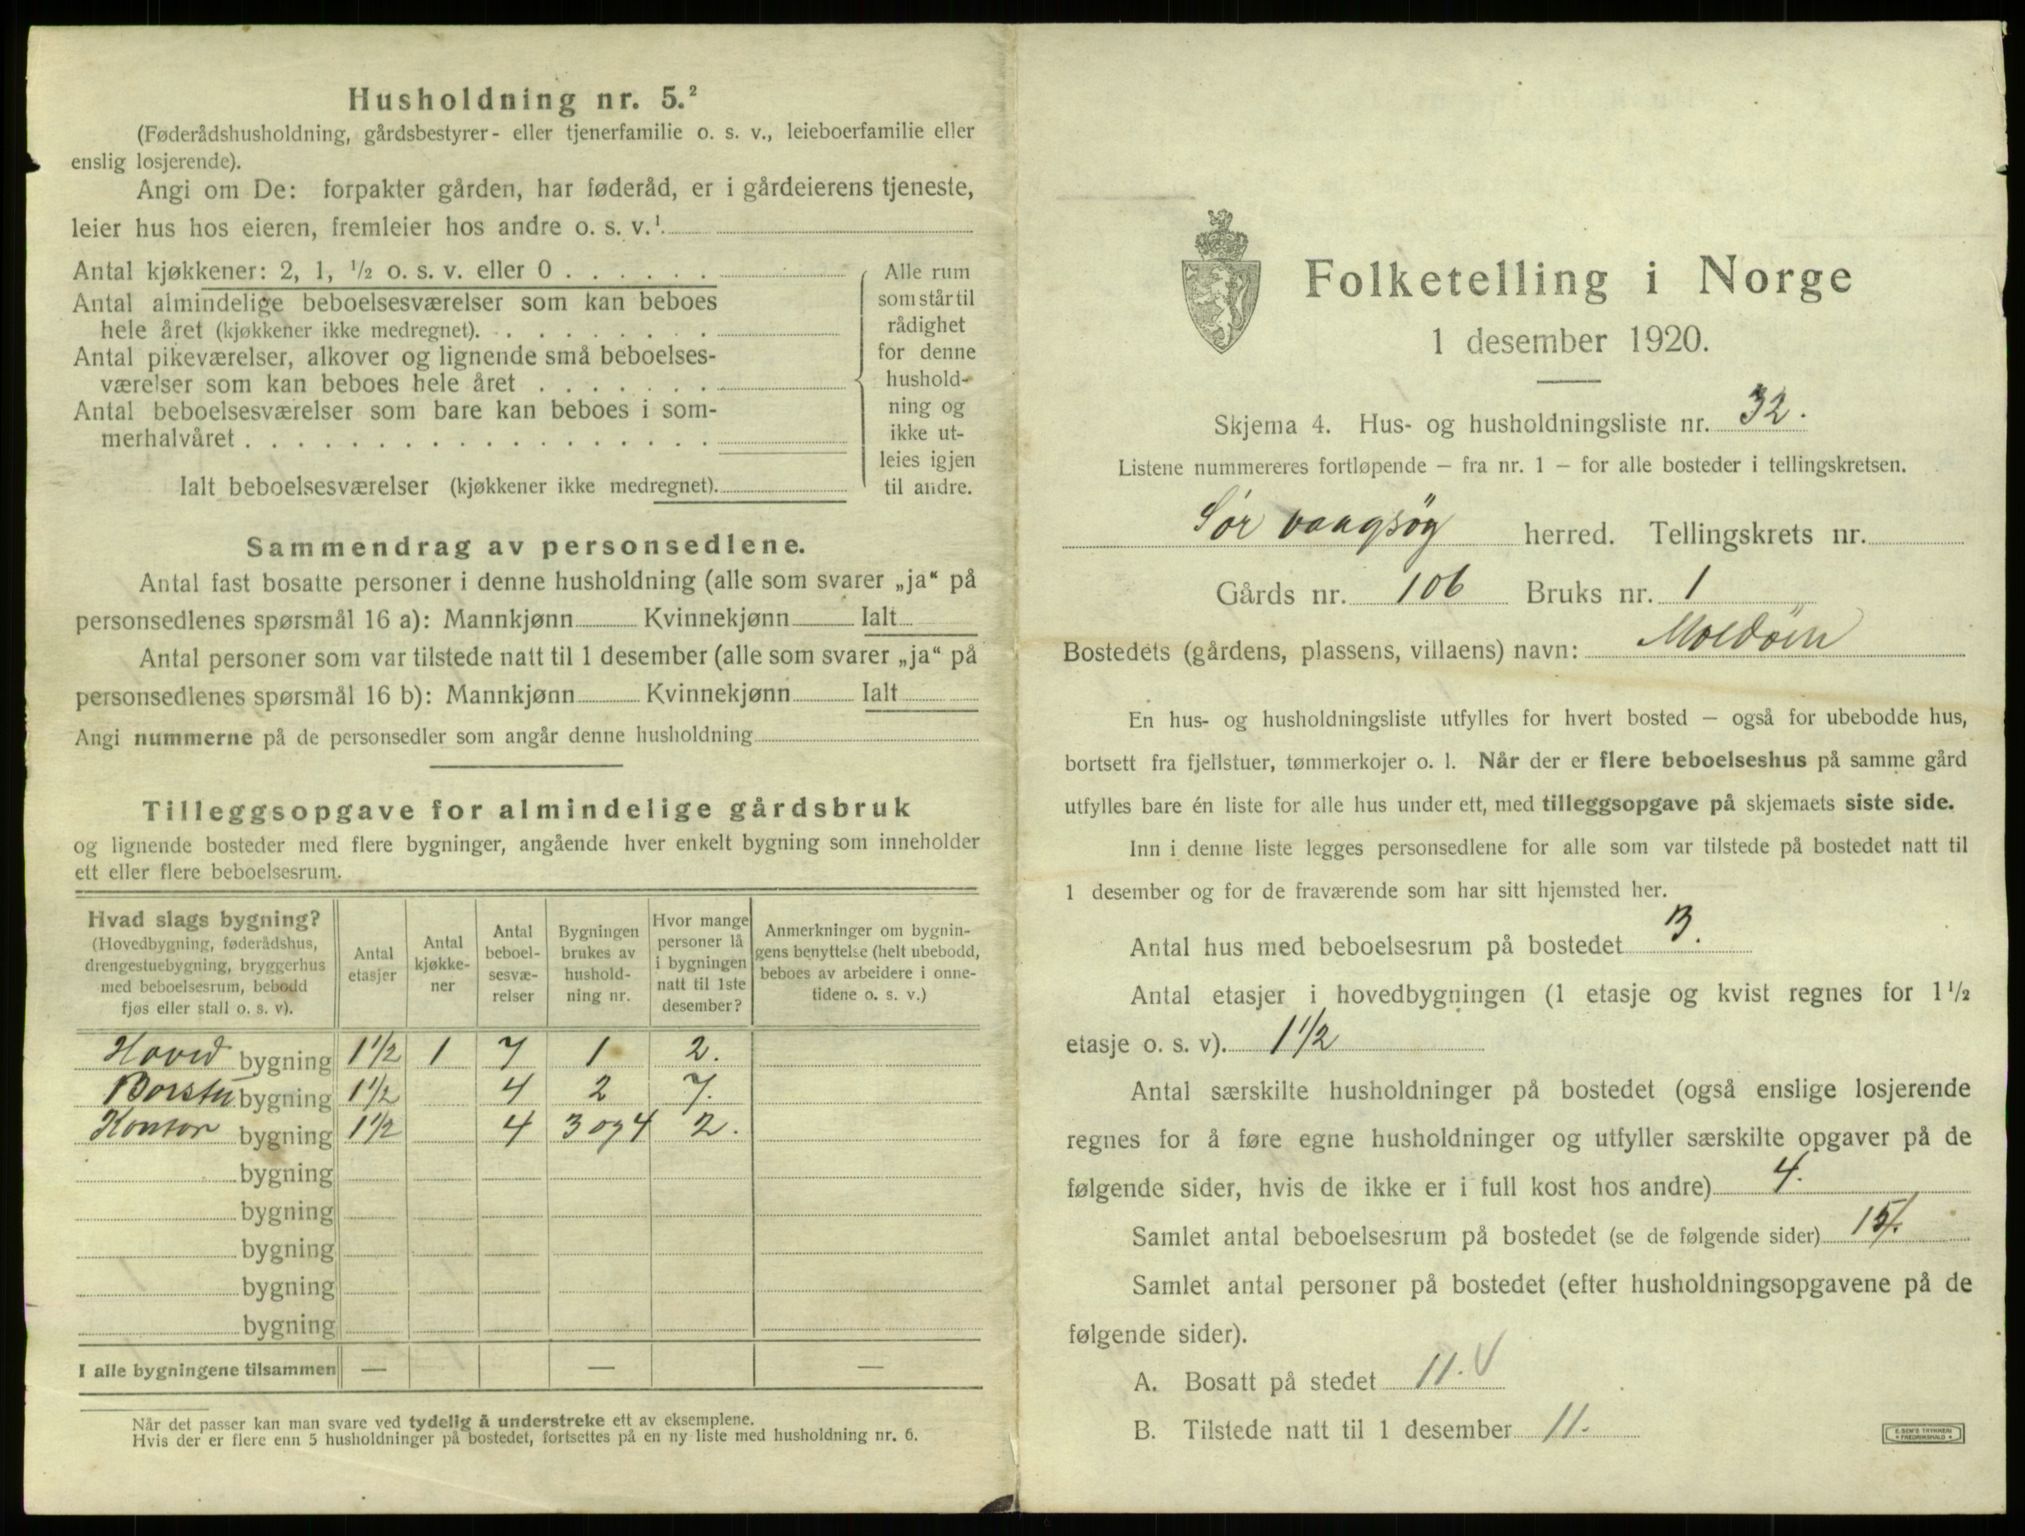 Husholdning nr. 5.²
(Føderådshusholdning, gårdsbestyrer- eller tjenerfamilie o. s. v., leieboerfamilie eller
enslig losjerende).
Angi om De: forpakter gården, har føderåd, er i gårdeierens tjeneste,
leier hus hos eieren, fremleier hos andre o. s. v.¹
Antal kjøkkener: 2, 1, ½ o. s. v. eller 0 . . . . . .
Antal almindelige beboelsesværelser som kan beboes
hele året (kjøkkener ikke medregnet). . . . . . . . .
Antal pikeværelser, alkover og lignende små beboelses-
værelser som kan beboes hele året . . . . . . .
Antal beboelsesværelser som bare kan beboes i som-
merhalvåret . . . . . . . . . . . . . . . . . .
Ialt beboelsesværelser (kjøkkener ikke medregnet).
Alle rum
som står til
rådighet
for denne
hushold-
ning og
ikke ut-
leies igjen
til andre.
Sammendrag av personsedlene.
Antal fast bosatte personer i denne husholdning (alle som svarer „ja“ på
personsedlenes spørsmål 16 a): Mannkjønn Kvinnekjønn Ialt
Antal personer som var tilstede natt til 1 desember (alle som svarer „ja“ på
personsedlenes spørsmål 16 b): Mannkjønn Kvinnekjønn Ialt
Angi nummerne på de personsedler som angår denne husholdning
Tilleggsopgave for almindelige gårdsbruk
og lignende bosteder med flere bygninger, angående hver enkelt bygning som inneholder
ett eller flere beboelsesrum.
Hvad slags bygning?
(Hovedbygning, føderådshus,
drengestuebygning, bryggerhus
med beboelsesrum, bebodd
fjøs eller stall o. s. v).
Antal
etasjer
Antal
kjøkke-
ner
Antal
beboel-
sesvæ-
relser
Bygningen
brukes av
hushold-
ning nr.
Hvor mange
personer lå
i bygningen
natt til 1ste
desember?
Anmerkninger om bygnin-
gens benyttelse (helt ubebodd,
beboes av arbeidere i onne-
tidene o. s. v.)
Hoved bygning 1½ 1 7 1 2.
Borstu bygning 1½ 4 2 7.
Kontor bygning 1½ 4 3 og 4 2.
bygning
bygning
bygning
bygning
bygning
I alle bygningene tilsammen — — —
Når det passer kan man svare ved tydelig å understreke ett av eksemplene.
Hvis der er flere enn 5 husholdninger på bostedet, fortsettes på en ny liste med husholdning nr. 6.
Folketelling i Norge
1 desember 1920.
Skjema 4. Hus- og husholdningsliste nr. 32.
Listene nummereres fortløpende – fra nr. 1 – for alle bosteder i tellingskretsen.
Sør vaagsøy herred. Tellingskrets nr.
Gårds nr. 106 Bruks nr. 1
Bostedets (gårdens, plassens, villaens) navn: Moldöen
En hus- og husholdningsliste utfylles for hvert bosted – også for ubebodde hus,
bortsett fra fjellstuer, tømmerkojer o. l. Når der er flere beboelseshus på samme gård
utfylles bare én liste for alle hus under ett, med tilleggsopgave på skjemaets siste side.
Inn i denne liste legges personsedlene for alle som var tilstede på bostedet natt til
1 desember og for de fraværende som har sitt hjemsted her.
Antal hus med beboelsesrum på bostedet 3.
Antal etasjer i hovedbygningen (1 etasje og kvist regnes for 1½
etasje o. s. v). 1½
Antal særskilte husholdninger på bostedet (også enslige losjerende
regnes for å føre egne husholdninger og utfyller særskilte opgaver på de
følgende sider, hvis de ikke er i full kost hos andre) 4.
Samlet antal beboelsesrum på bostedet (se de følgende sider) 15.
Samlet antal personer på bostedet (efter husholdningsopgavene på de
følgende sider).
A. Bosatt på stedet 11. V
B. Tilstede natt til 1 desember 11.
E. SEM'S TRYKKERI
• FREDRIKSHALD •